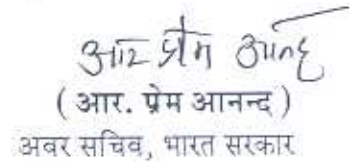 आर प्रेम आनंद
( आर. प्रेम आनन्द )
अवर सचिव, भारत सरकार